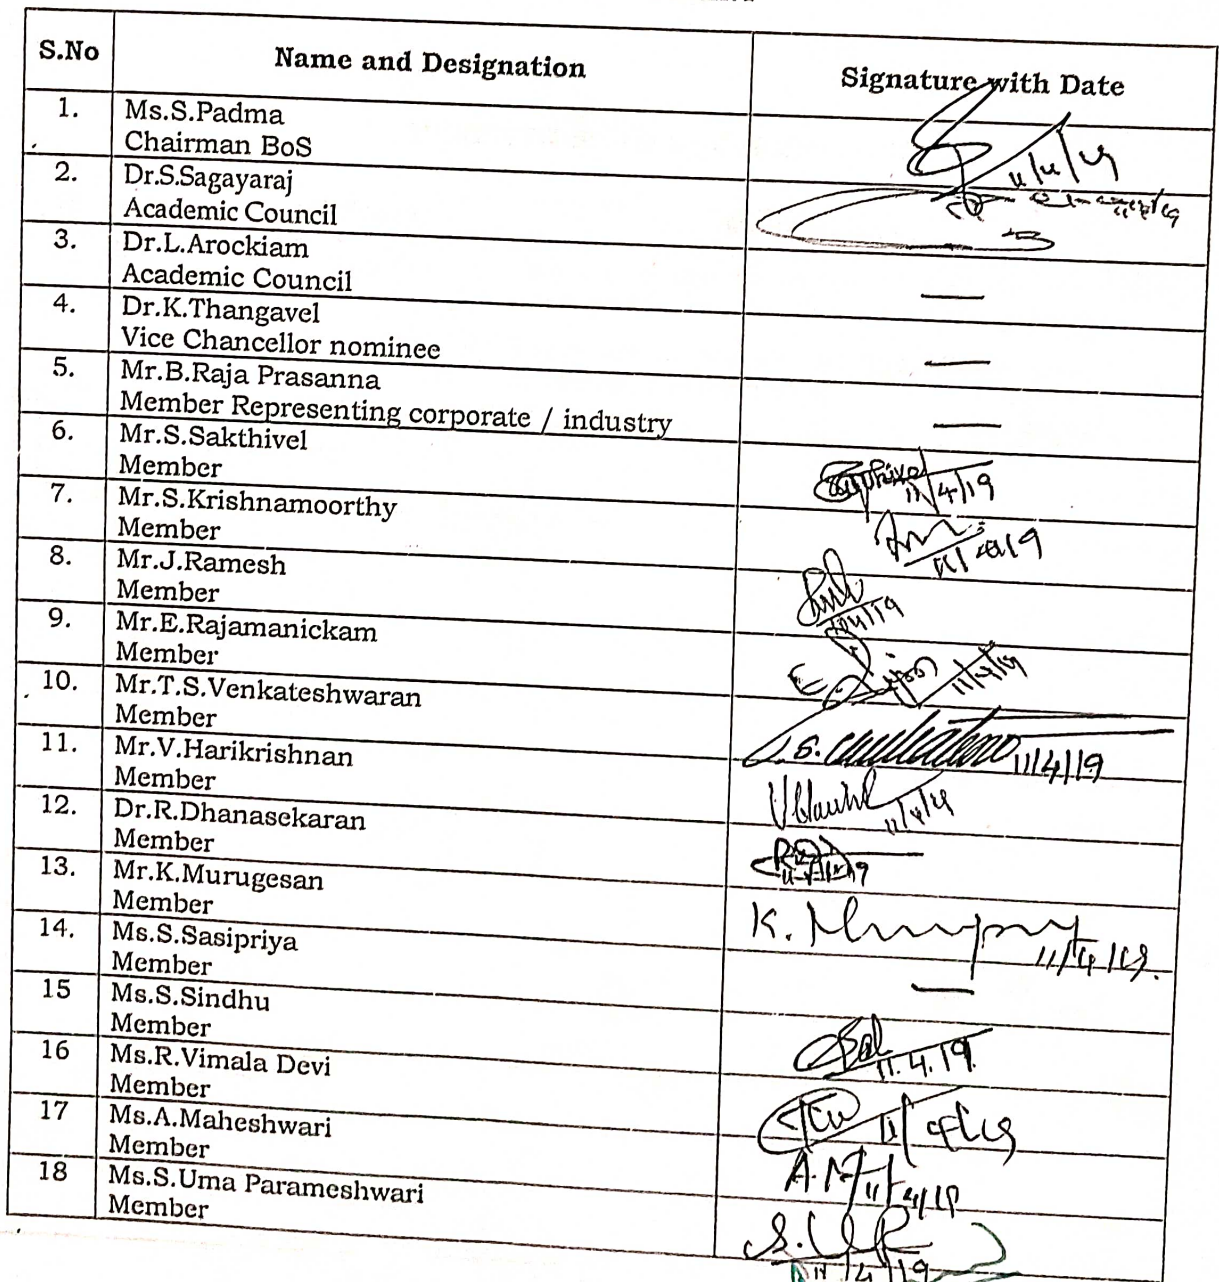 S.No Name and Designation Signature with Date
1. Ms.S.Padma
Chairman BoS
11/4/19
2. Dr.S.Sagayaraj
Academic Council
3. Dr.L.Arockiam
Academic Council
—
4. Dr.K.Thangavel
Vice Chancellor nominee
—
5. Mr.B.Raja Prasanna
Member Representing corporate / industry
—
6. Mr.S.Sakthivel
Member
11/4/19
7. Mr.S.Krishnamoorthy
Member
8. Mr.J.Ramesh
Member
11/4/19
9. Mr.E.Rajamanickam
Member
11/4/19
10. Mr.T.S.Venkateshwaran
Member
11/4/19
11. Mr.V.Harikrishnan
Member
11/4/19
12. Dr.R.Dhanasekaran
Member
13. Mr.K.Murugesan
Member
K. 11/4/19.
14. Ms.S.Sasipriya
Member
—
15 Ms.S.Sindhu
Member
11.4.19
16 Ms.R.Vimala Devi
Member
11/4/19
17 Ms.A.Maheshwari
Member
A.M 11/4/19
18 Ms.S.Uma Parameshwari
Member
11/4/19